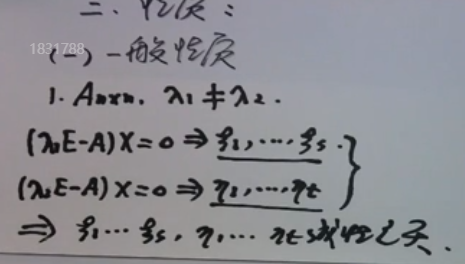 二、性质：
(一) 一般性质
1831788
1. Aₙₓₙ, λ₁ ≠ λ₂.
(λ₁E-A)X=0 ⇒ ξ₁,…ξₛ.
(λ₂E-A)X=0 ⇒ η₁,…,ηₜ
⇒ ξ₁…ξₛ, η₁…ηₜ线性无关.